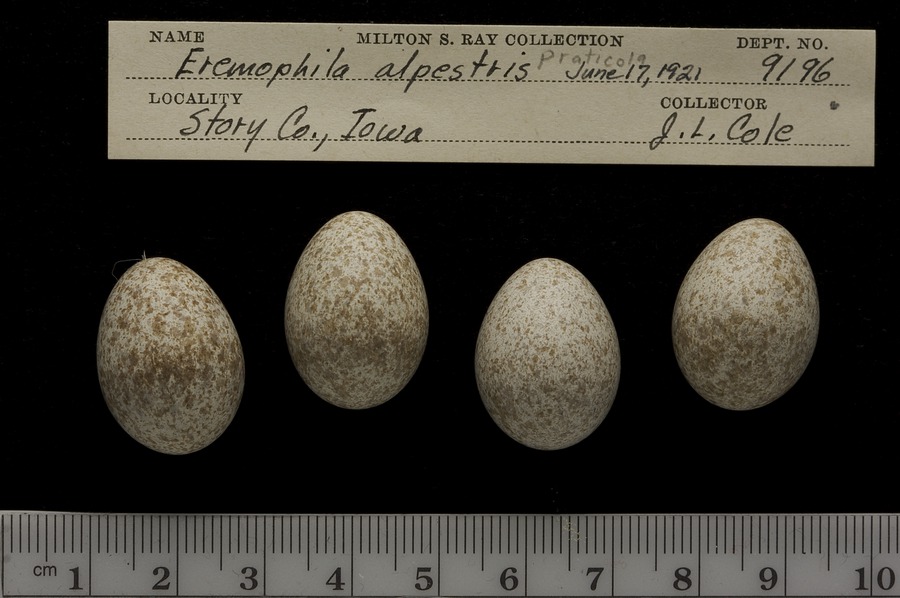 NAME MILTON S. RAY COLLECTION DEPT. NO.
Eremophila alpestris praticola June 17, 1921 9196
LOCALITY COLLECTOR
Story Co., Iowa J. L. Cole
cm 1 2 3 4 5 6 7 8 9 10